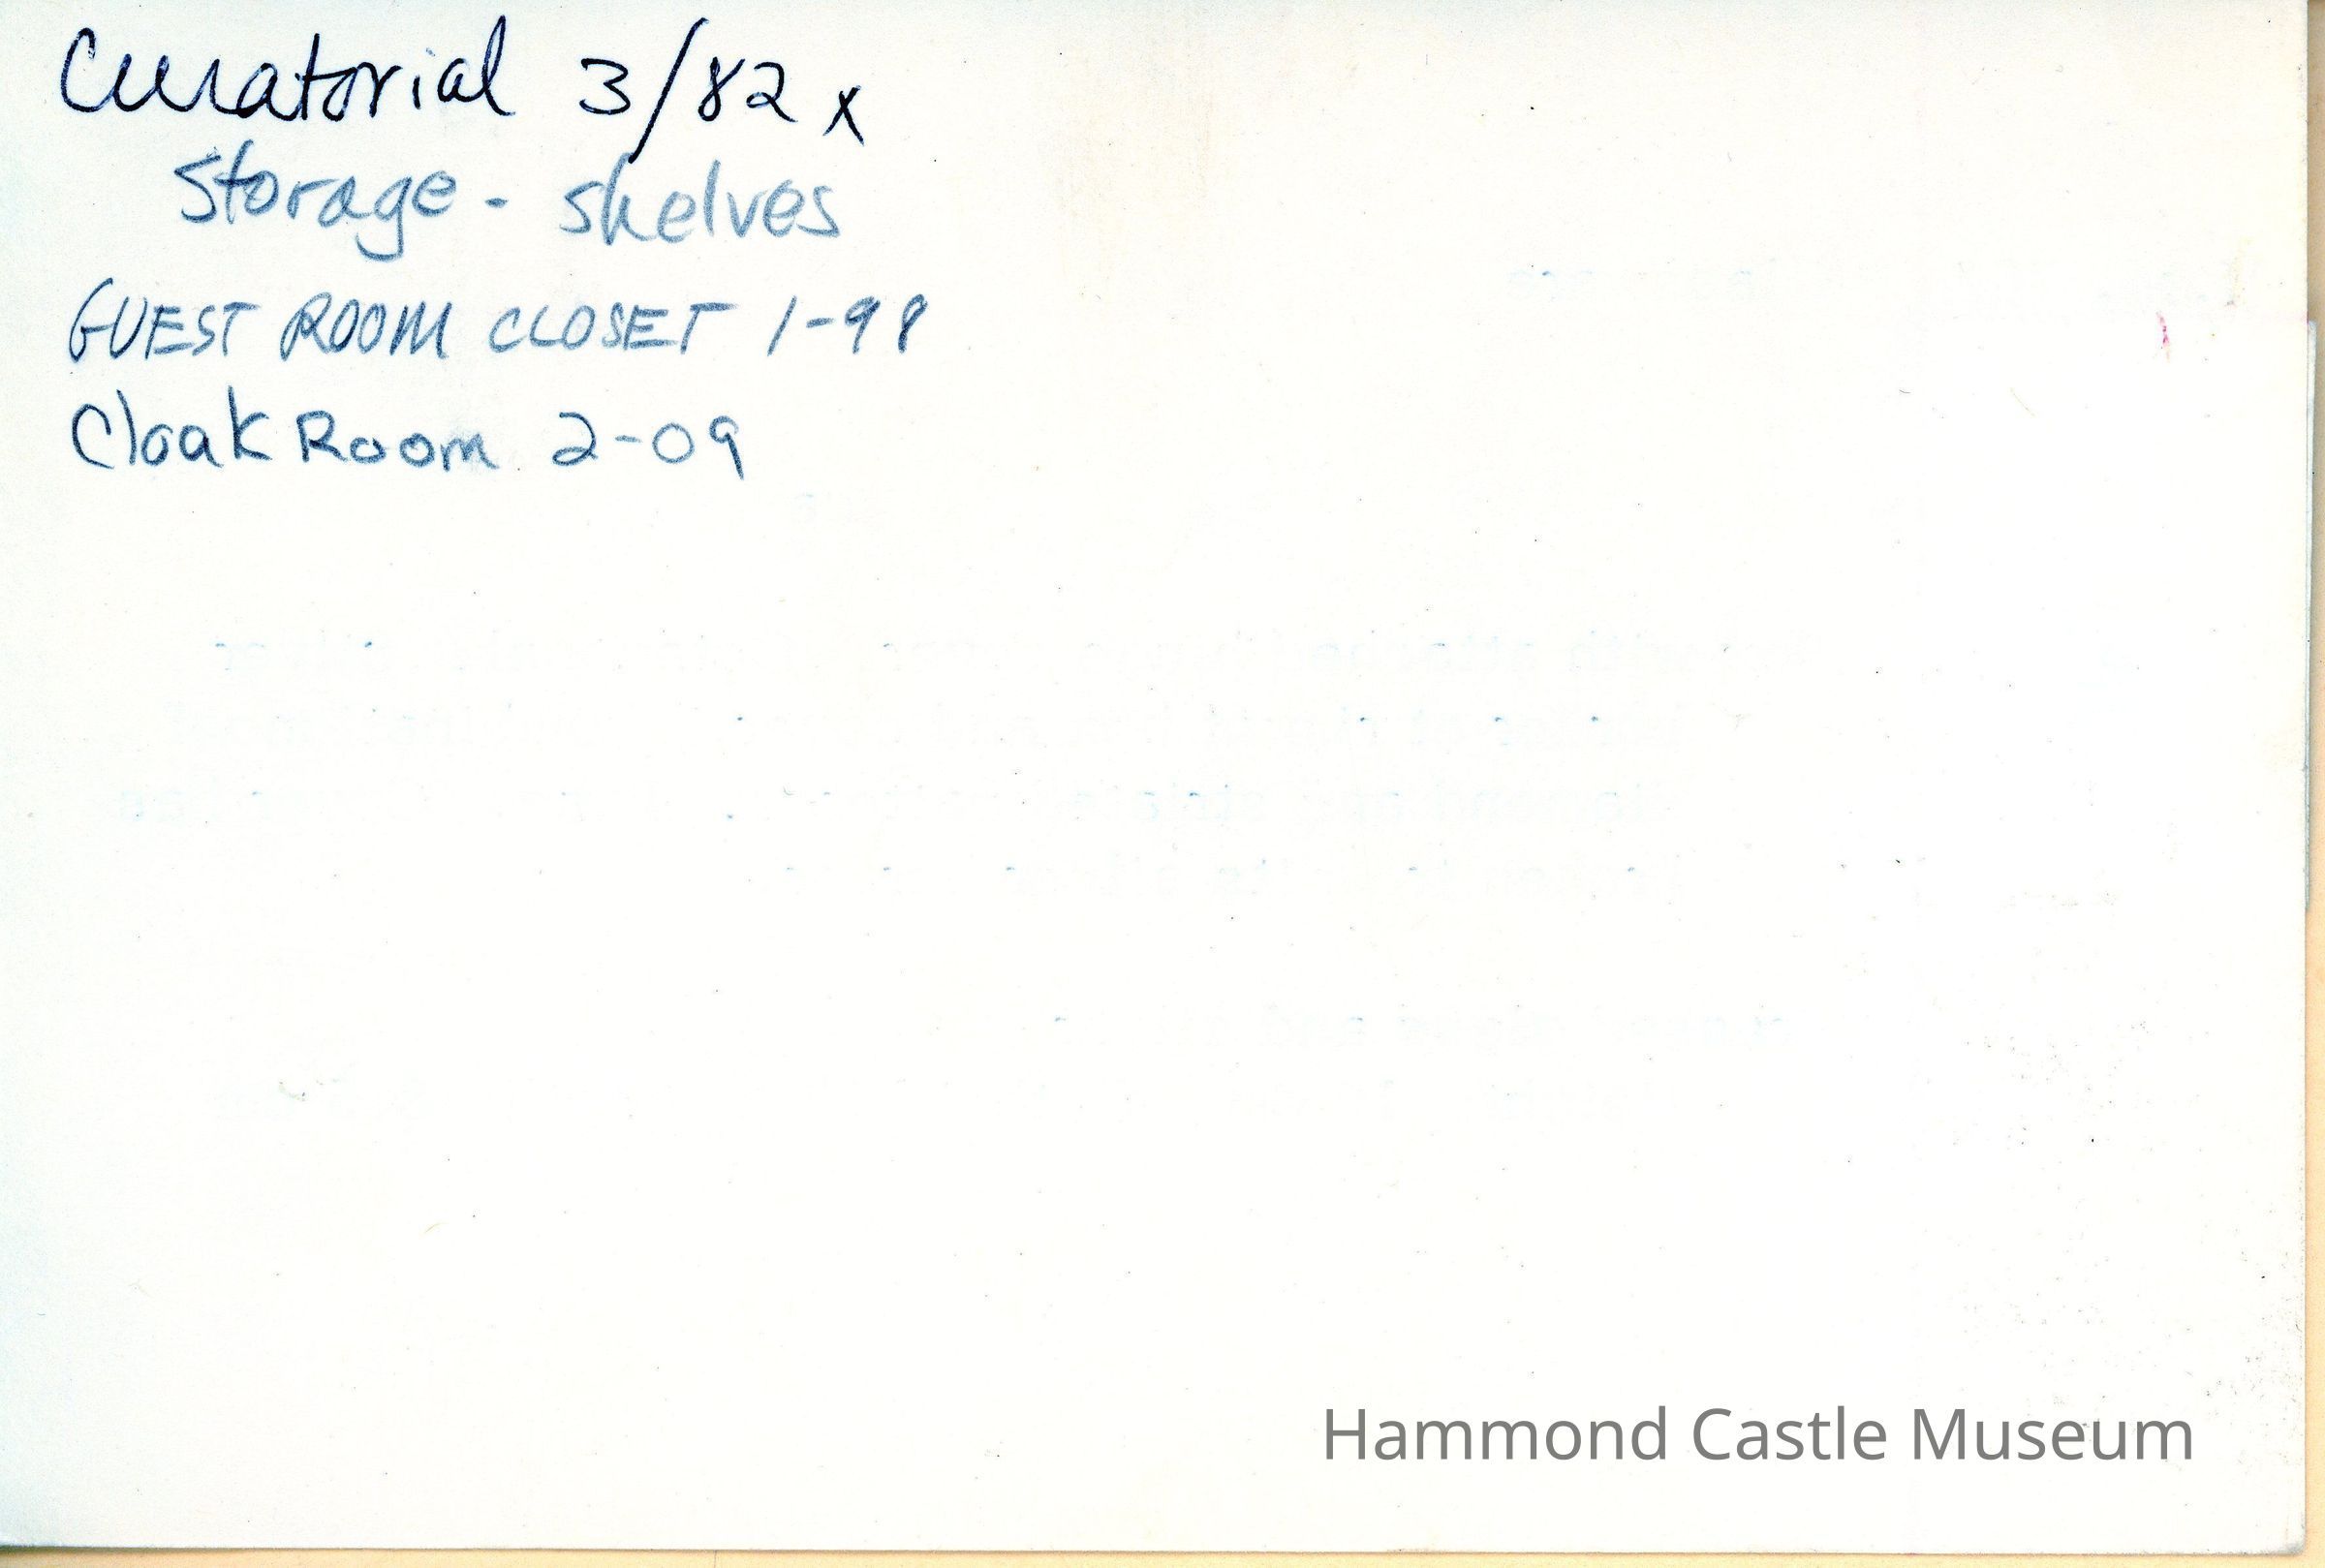 Curatorial 3/82 x
Storage - shelves
GUEST ROOM CLOSET 1-98
Cloak Room 2-09
Hammond Castle Museum